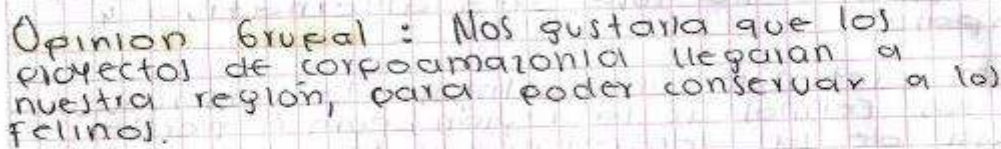 Opinion Grupal: Nos gustaria que los
proyectos de corpoamazonia llegaran a
nuestra región, para poder conservar a los
felinos.